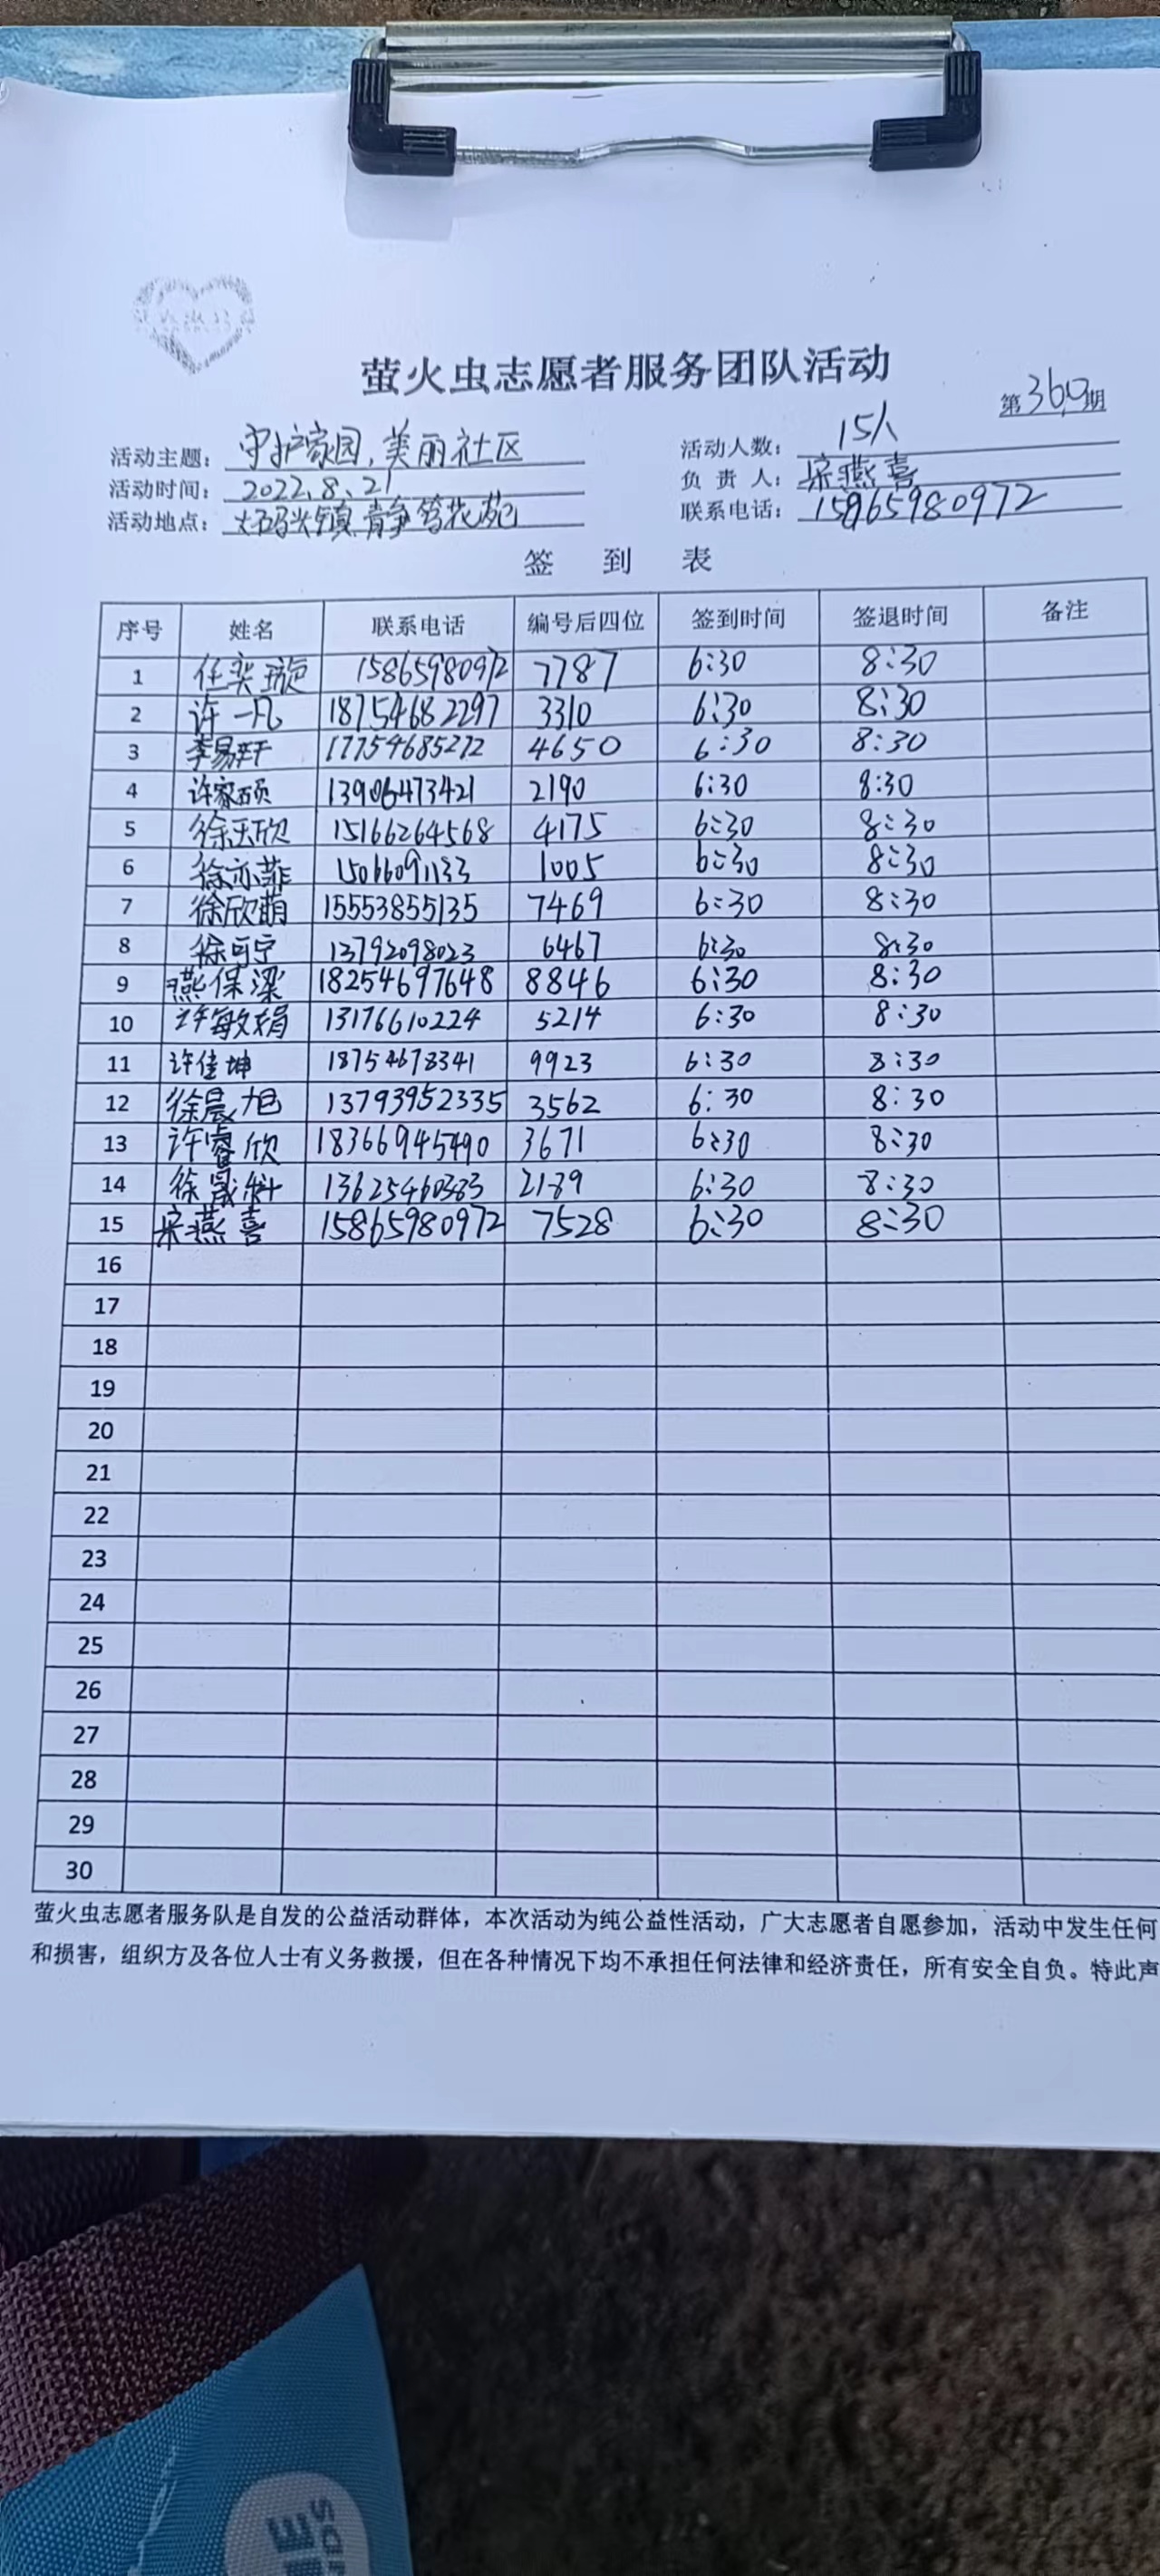 萤火虫志愿者服务团队活动
第360期
活动主题： 守护家园,美丽社区 活动人数： 15人
活动时间： 2022.8.21 负责人： 宋燕喜
活动地点： 大码头镇 花苑 联系电话： 15865980972
签到表
序号 姓名 联系电话 编号后四位 签到时间 签退时间 备注
1 任奕璇 15865980972 7787 6:30 8:30
2 许一凡 18754682297 3310 6:30 8:30
3 李易轩 17754685272 4650 6:30 8:30
4 许家硕 13906473421 2190 6:30 8:30
5 徐天欣 15166264568 4175 6:30 8:30
6 徐亦菲 15066091133 1005 6:30 8:30
7 徐欣萌 15553855135 7469 6:30 8:30
8 徐可宁 13792098023 6467 6:30 8:30
9 燕保梁 18254697648 8846 6:30 8:30
10 许敏娟 13176610224 5214 6:30 8:30
11 许佳坤 18754678341 9923 6:30 8:30
12 徐晨旭 13793952335 3562 6:30 8:30
13 许睿欣 18366945490 3671 6:30 8:30
14 徐晟 13625460383 2189 6:30 8:30
15 宋燕喜 15865980972 7528 6:30 8:30
16
17
18
19
20
21
22
23
24
25
26
27
28
29
30
萤火虫志愿者服务队是自发的公益活动群体，本次活动为纯公益性活动，广大志愿者自愿参加，活动中发生任何
和损害，组织方及各位人士有义务救援，但在各种情况下均不承担任何法律和经济责任，所有安全自负。特此声